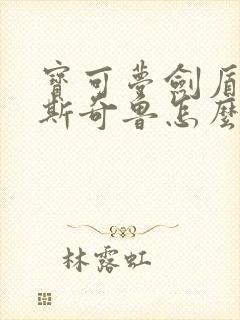 寶可夢劍盾
斯奇魯怎麼
林露虹